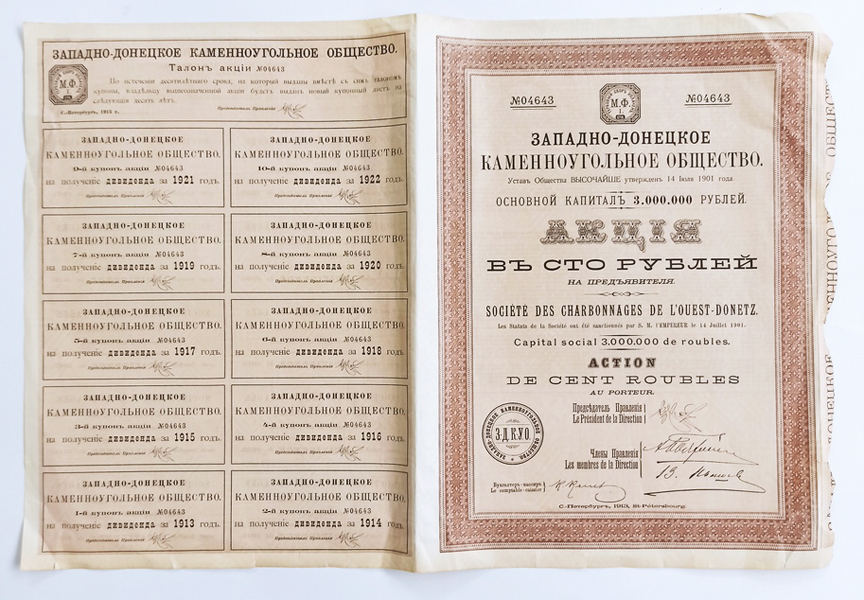 ЗАПАДНО-ДОНЕЦКОЕ КАМЕННОУГОЛЬНОЕ ОБЩЕСТВО.
Талонъ акціи №04643
По истеченіи десятилѣтняго срока, на который выданы вмѣстѣ съ симъ талономъ
купоны, владѣльцу вышеозначенной акціи будетъ выданъ новый купонный листъ на
слѣдующія десять лѣтъ.
С.-Петербургъ, 1913 г.
Предсѣдатель Правленія
М.Ф.
ЗАПАДНО-ДОНЕЦКОЕ
КАМЕННОУГОЛЬНОЕ ОБЩЕСТВО.
9-й купонъ акціи №04643
на полученіе дивиденда за 1921 годъ.
Предсѣдатель Правленія
ЗАПАДНО-ДОНЕЦКОЕ
КАМЕННОУГОЛЬНОЕ ОБЩЕСТВО.
10-й купонъ акціи №04643
на полученіе дивиденда за 1922 годъ.
Предсѣдатель Правленія
ЗАПАДНО-ДОНЕЦКОЕ
КАМЕННОУГОЛЬНОЕ ОБЩЕСТВО.
7-й купонъ акціи №04643
на полученіе дивиденда за 1919 годъ.
Предсѣдатель Правленія
ЗАПАДНО-ДОНЕЦКОЕ
КАМЕННОУГОЛЬНОЕ ОБЩЕСТВО.
8-й купонъ акціи №04643
на полученіе дивиденда за 1920 годъ.
Предсѣдатель Правленія
ЗАПАДНО-ДОНЕЦКОЕ
КАМЕННОУГОЛЬНОЕ ОБЩЕСТВО.
5-й купонъ акціи №04643
на полученіе дивиденда за 1917 годъ.
Предсѣдатель Правленія
ЗАПАДНО-ДОНЕЦКОЕ
КАМЕННОУГОЛЬНОЕ ОБЩЕСТВО.
6-й купонъ акціи №04643
на полученіе дивиденда за 1918 годъ.
Предсѣдатель Правленія
ЗАПАДНО-ДОНЕЦКОЕ
КАМЕННОУГОЛЬНОЕ ОБЩЕСТВО.
3-й купонъ акціи №04643
на полученіе дивиденда за 1915 годъ.
Предсѣдатель Правленія
ЗАПАДНО-ДОНЕЦКОЕ
КАМЕННОУГОЛЬНОЕ ОБЩЕСТВО.
4-й купонъ акціи №04643
на полученіе дивиденда за 1916 годъ.
Предсѣдатель Правленія
ЗАПАДНО-ДОНЕЦКОЕ
КАМЕННОУГОЛЬНОЕ ОБЩЕСТВО.
1-й купонъ акціи №04643
на полученіе дивиденда за 1913 годъ.
Предсѣдатель Правленія
ЗАПАДНО-ДОНЕЦКОЕ
КАМЕННОУГОЛЬНОЕ ОБЩЕСТВО.
2-й купонъ акціи №04643
на полученіе дивиденда за 1914 годъ.
Предсѣдатель Правленія
№04643 №04643
М.Ф.
ЗАПАДНО-ДОНЕЦКОЕ
КАМЕННОУГОЛЬНОЕ ОБЩЕСТВО.
Уставъ Общества ВЫСОЧАЙШЕ утвержденъ 14 Іюля 1901 года
ОСНОВНОЙ КАПИТАЛЪ 3.000.000 РУБЛЕЙ.
АКЦІЯ
ВЪ СТО РУБЛЕЙ
НА ПРЕДЪЯВИТЕЛЯ.
SOCIÉTÉ DES CHARBONNAGES DE L'OUEST-DONETZ.
Les Statuts de la Société ont été sanctionnés par S. M. l'EMPEREUR le 14 Juillet 1901.
Capital social 3.000.000 de roubles.
ACTION
DE CENT ROUBLES
AU PORTEUR.
Предсѣдатель Правленія
Le Président de la Direction
Члены Правленія
Les membres de la Direction
ЗАПАДНО-ДОНЕЦКОЕ КАМЕННОУГОЛЬНОЕ ОБЩЕСТВО
З.Д.К.У.О.
Бухгалтеръ-кассиръ
Le comptable-caissier
С.-Петербургъ, 1913, St-Pétersbourg.